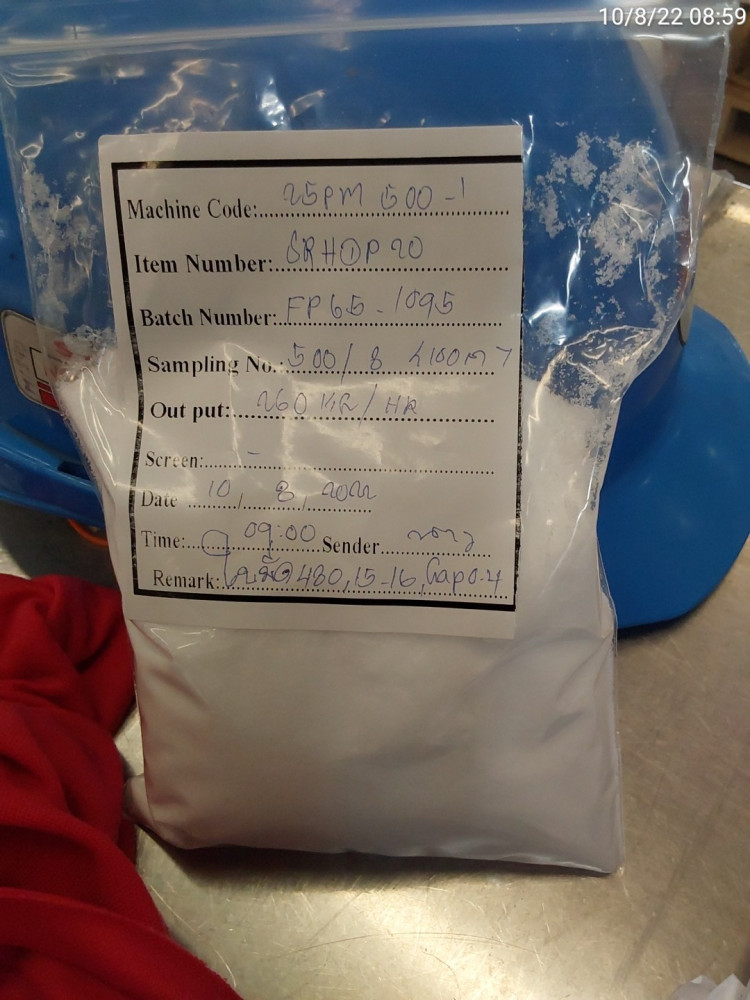 10/8/22 08:59
Machine Code: 25PM 500-1
Item Number: SRH①P20
Batch Number: FP65-1095
Sampling No.: 500/8
Out put: 260 KR/HR
Screen: -
Date 10, 8, 2022
Time: 09:00 Sender
Remark: ใบมีด 480, 15-16, Gap 0.4